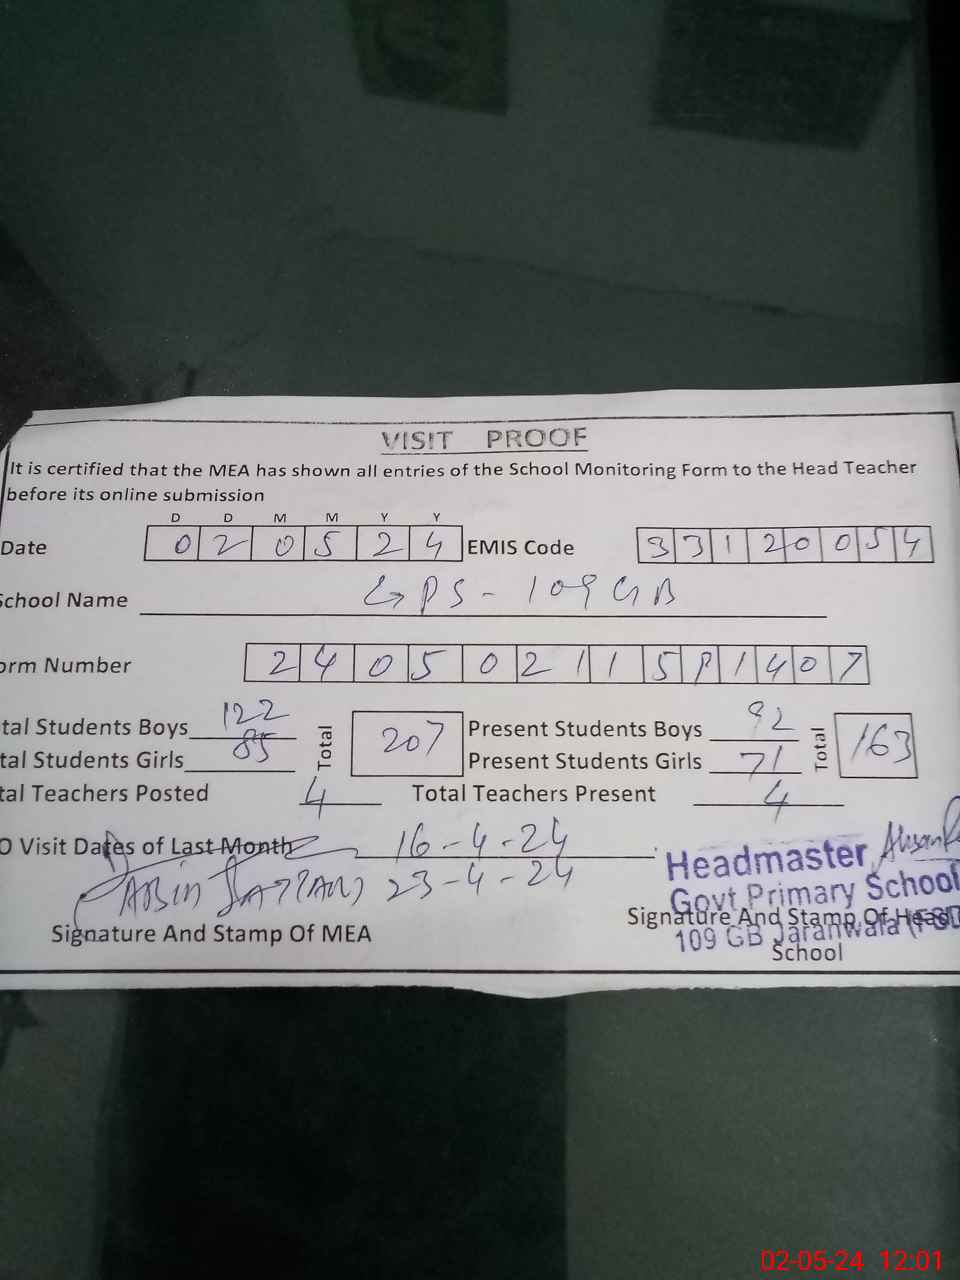 VISIT PROOF
It is certified that the MEA has shown all entries of the School Monitoring Form to the Head Teacher
before its online submission
D D M M Y Y
Date 0 2 0 5 2 4 EMIS Code 3 3 1 2 0 0 5 4
School Name GPS - 109 GB
orm Number 2 4 0 5 0 2 1 1 5 P 1 4 0 7
tal Students Boys 122 Total 207 Present Students Boys 92 Total 163
tal Students Girls 85 Present Students Girls 71
tal Teachers Posted 4 Total Teachers Present 4
O Visit Dates of Last Month 16-4-24
23-4-24
Headmaster
Govt Primary School
109 GB Jaranwala (FSD
Signature And Stamp Of MEA
Signature And Stamp Of Head
School
02-05-24 12:01